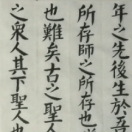 年之先後生於吾
所存師之所存也
也難矣古之聖人
之衆人其下聖人也